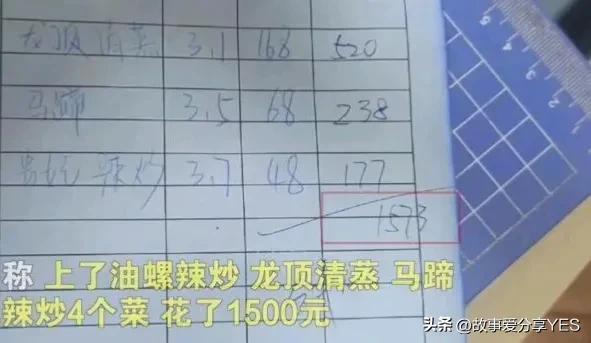 龙顶清蒸 3.1 168 520
马蹄 3.5 68 238
辣炒 3.7 48 177
1573
称 上了油螺辣炒 龙顶清蒸 马蹄
辣炒4个菜 花了1500元
头条 @故事爱分享YES